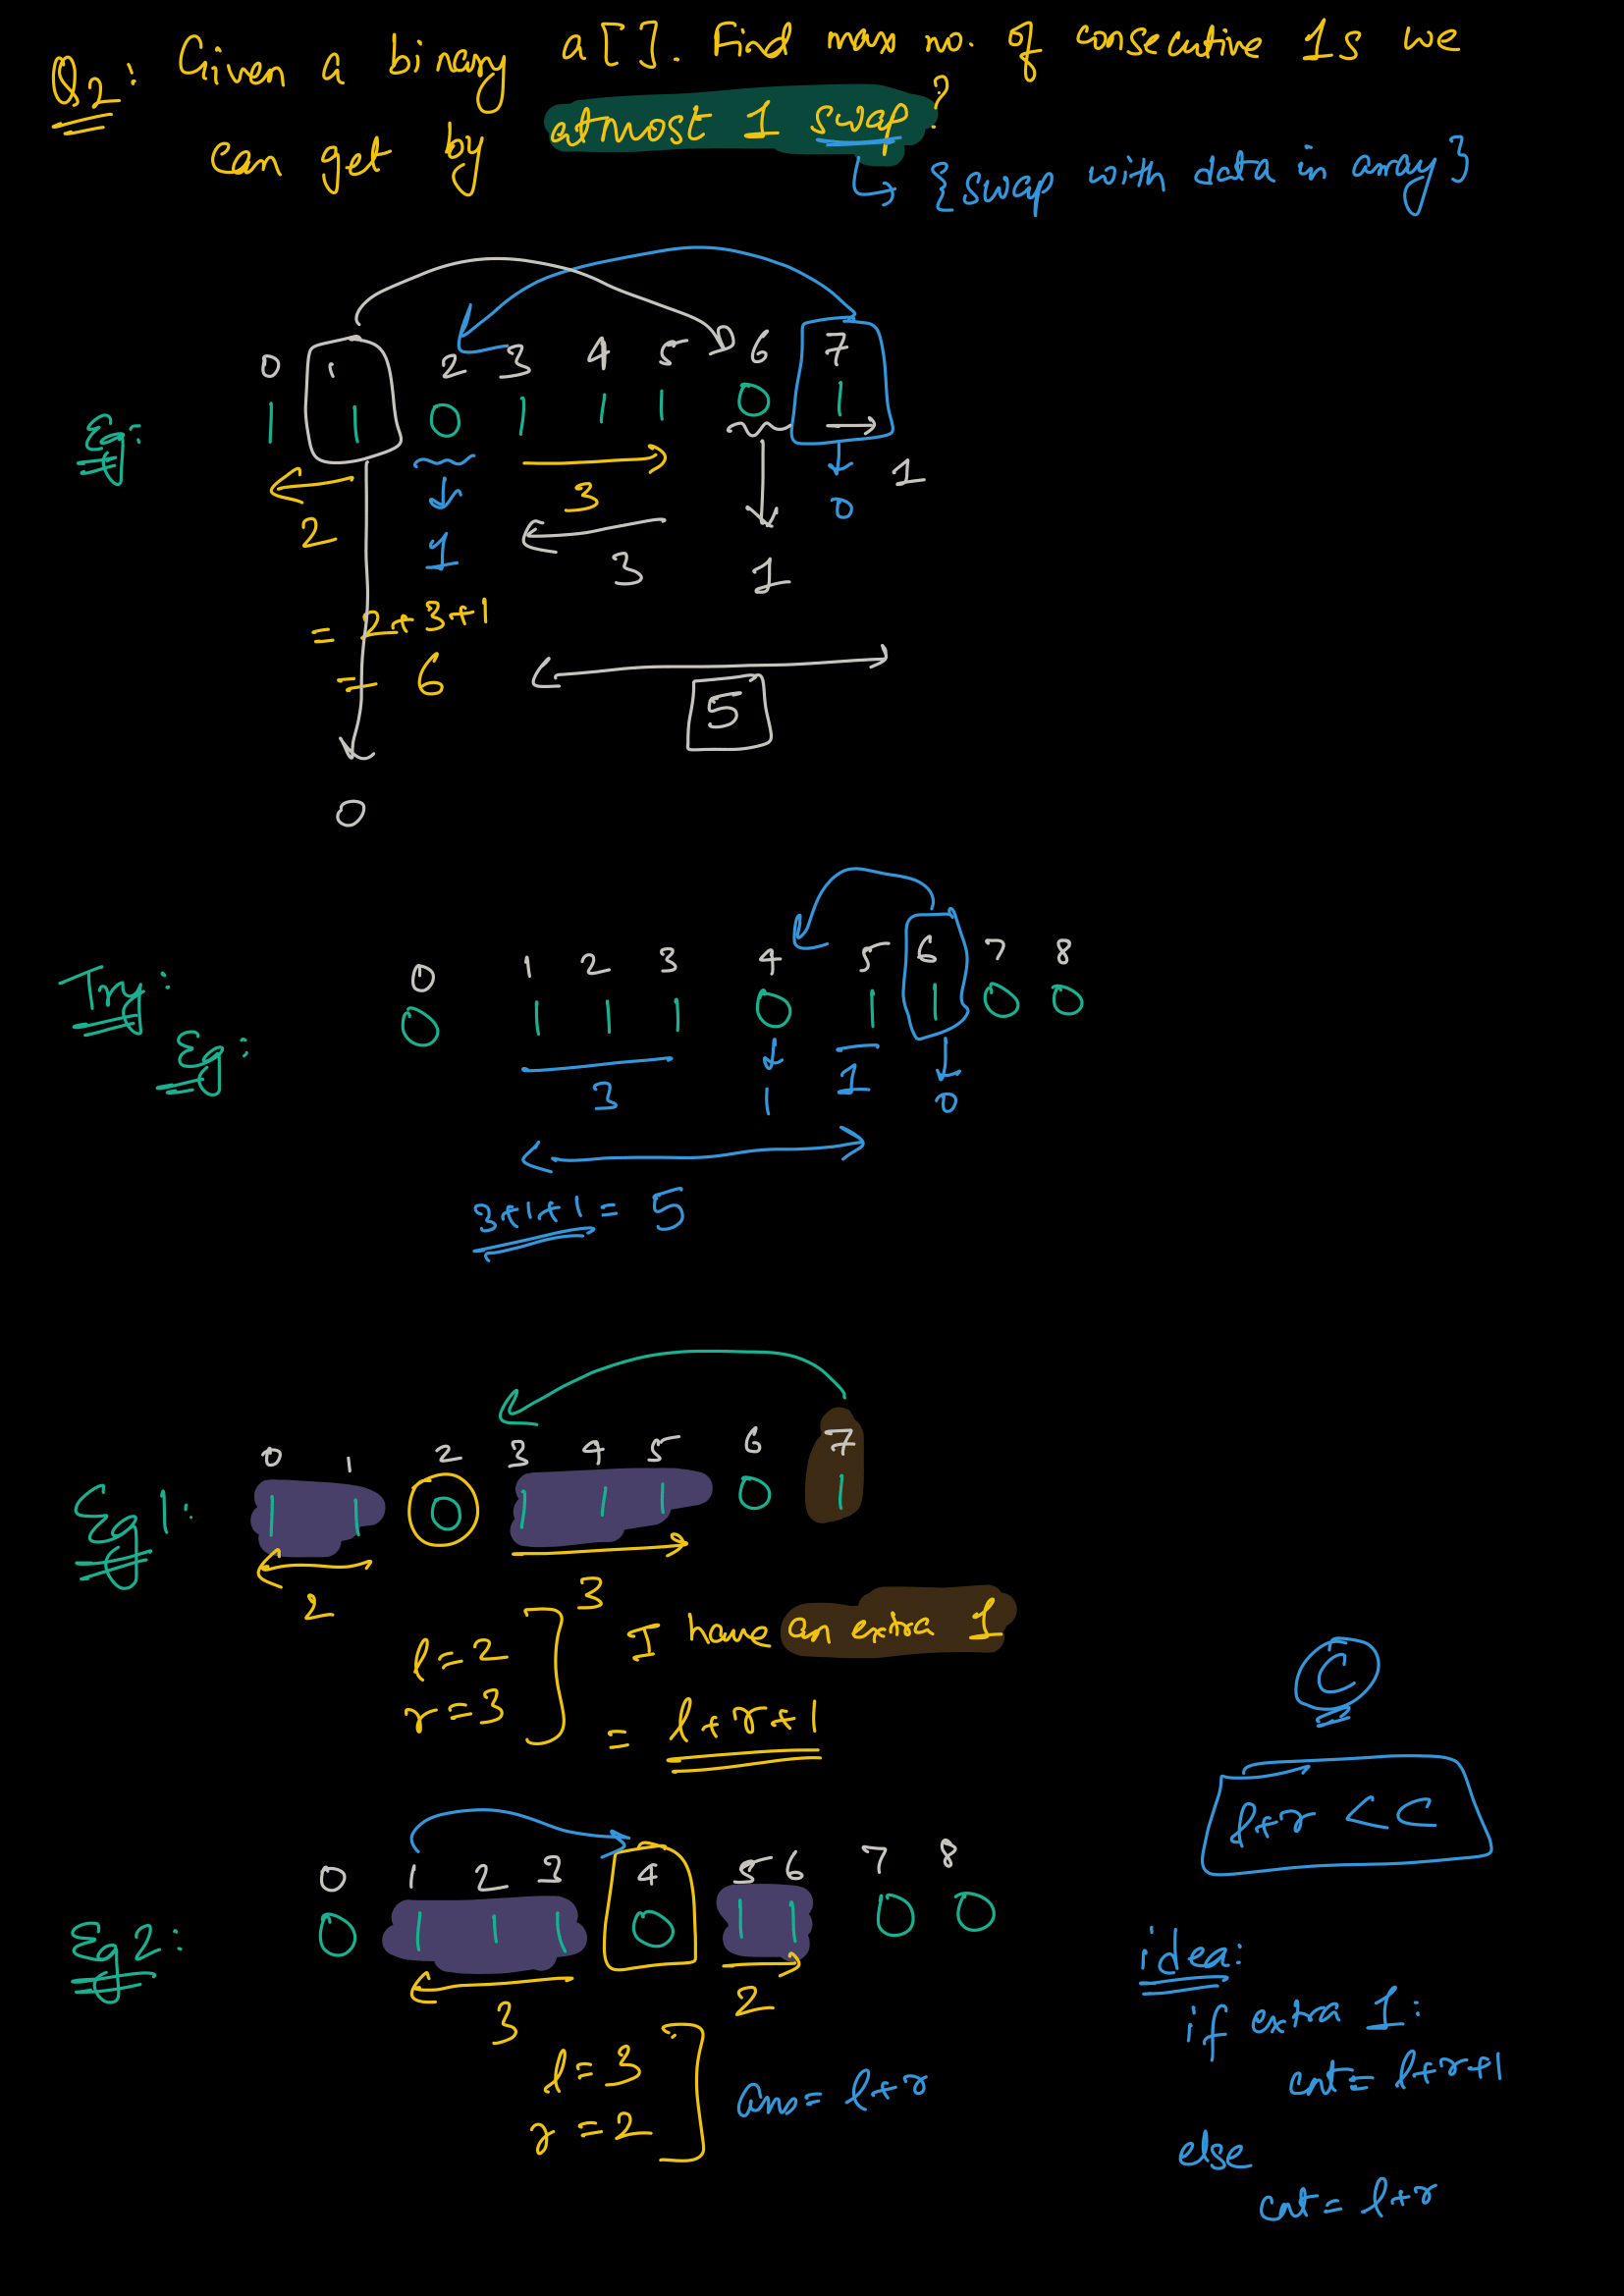 Q2: Given a binary a[]. Find max no. of consecutive 1s we
can get by atmost 1 swap?
{swap with data in array}
0 1 2 3 4 5 6 7
Eg: 1 1 0 1 1 1 0 1
2 3 0 1
1 3 1
= 2+3+1
= 6
5
0
Try:
0 1 2 3 4 5 6 7 8
Eg: 0 1 1 1 0 1 1 0 0
3 1 1 0
3+1+1 = 5
0 1 2 3 4 5 6 7
Eg1: 1 1 0 1 1 1 0 1
2 3
l=2
r=3
I have an extra 1
= l+r+1
C
l+r < C
0 1 2 3 4 5 6 7 8
Eg2: 0 1 1 1 0 1 1 0 0
3 2
l=3
r=2
ans= l+r
idea:
if extra 1:
cnt= l+r+1
else
cnt= l+r